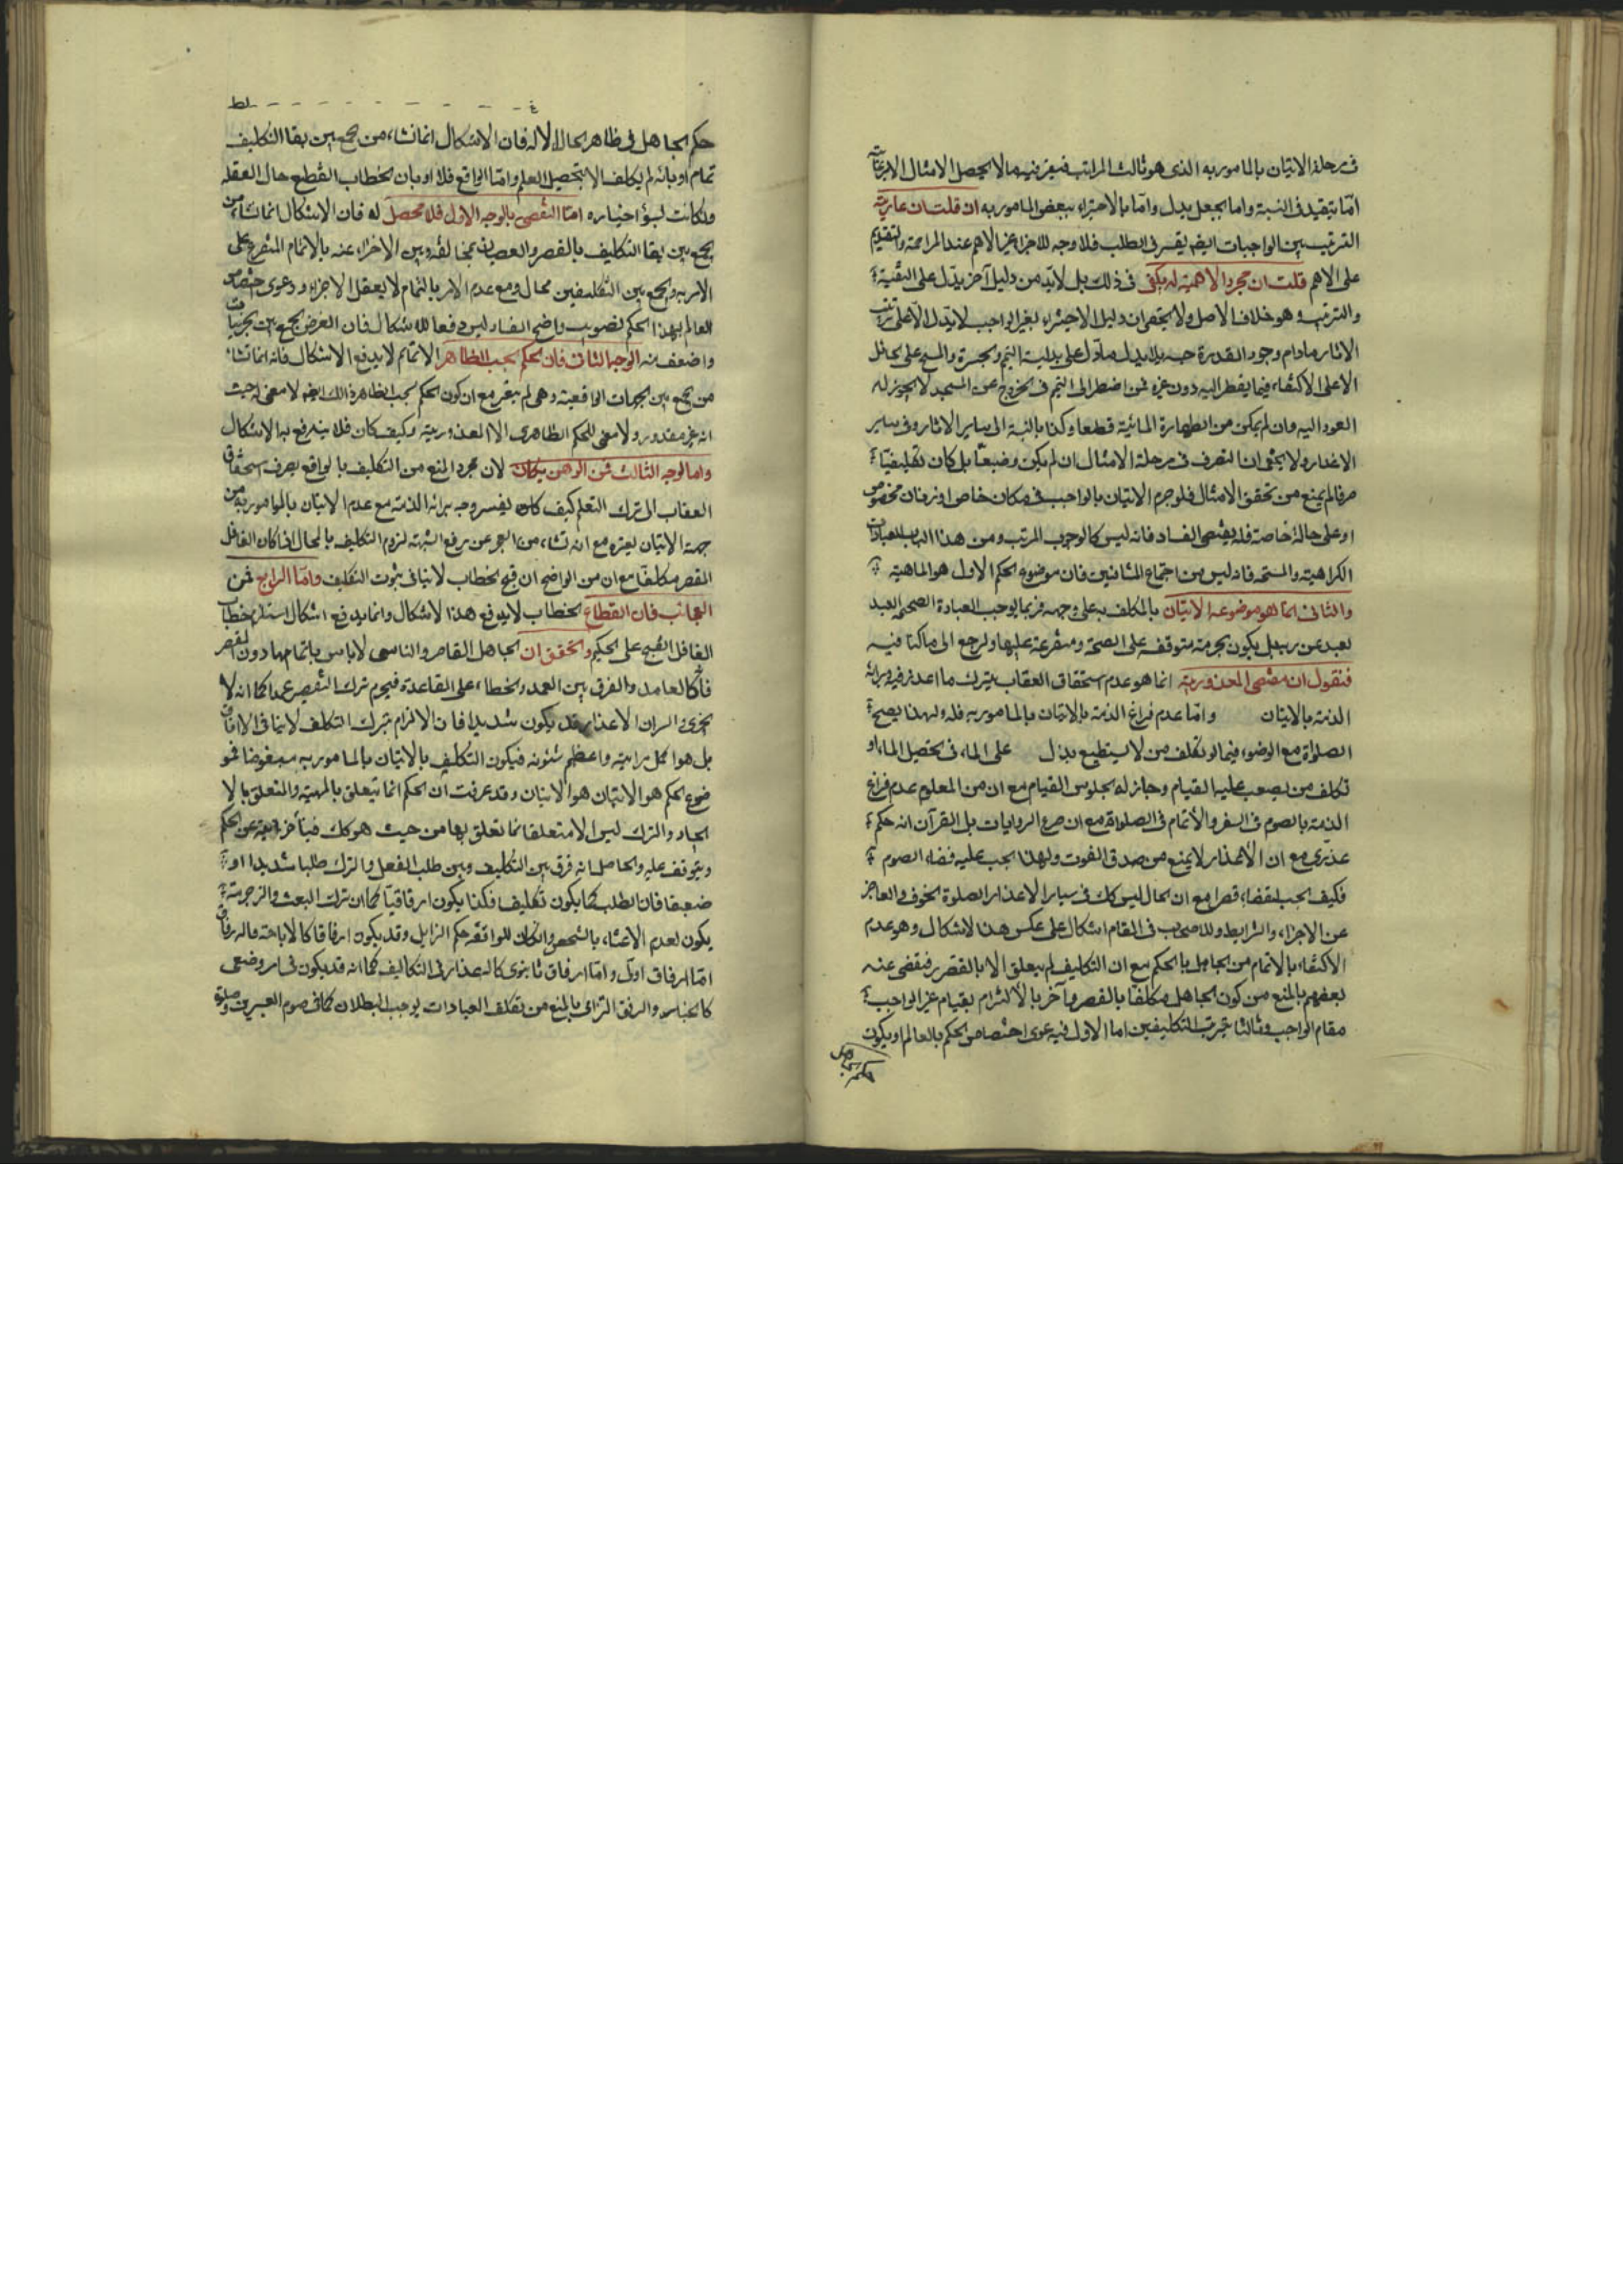 في مرحلة الاتيان بالمامور به الذي هو ثالث المراتب فيعتبر فيه ما لا يحصل الامتثال الا
امّا بتقييد في النسبة واما بجعل بدل وامّا بالاجتزاء ببعض المامور به ان قلت ان
الترتيب بين الواجبات ايضا في الطلب فلا وجه للاجزاء بغير الاهم عند المزاحمة
على الاهم قلت ان مجرد الاهمية لا يكفي في ذلك بل لابد من دليل آخر يدل على
والترتيب و هو خلاف الاصل ولا يخفى ان دليل الاجتزاء بغير الواجب لا يدل
الآثار ما دام وجود القدرة بلا بدل ما دل على بدلية التيمم والجبيرة والمسح على الحائل
الا على الاكتفاء فيما يضطر اليه دون غيره فمن اضطر الى التيمم في الخروج عن المسجد لا يجوز له
العود اليه وان لم يمكن من الطهارة المائية قطعا وكذا بالنسبة الى ساير الاثار وفي ساير
الاعذار ولا يخفى ان التصرف في مرحلة الامتثال ان لم يكن وضعيّا بل كان تكليفيّا
صرفا لم يمنع من تحقق الامتثال فلو حرم الاتيان بالواجب في مكان خاص او زمان مخصوص
او على حالة خاصة فلا يقتضي الفساد فانه ليس كالوجوب المرتب ومن هذا الباب العبادات
الكراهية والمستحبة فانه ليس من اجتماع المتنافيين فان موضوع الحكم الاول هو الماهية
والثاني انما هو موضوعه الاتيان بالمكلف به على وجهه فربما يوجب العبادة الصحيحة العبد
بعد عن ربه بل يكون حرمته متوقفة على الصحة ومتفرعة عليها ولنرجع الى ما كنا فيه
فنقول ان مقتضى المعذورية انما هو عدم استحقاق العقاب بترك ما اعذر فيه وبراءة
الذمة بالاتيان وامّا عدم فراغ الذمة بالاتيان بالمامور به فلا ولهذا يصح
الصلوة مع الوضوء فيما لو تكلف من لا يستطيع بذل على الماء في تحصيل الماء او
تكلف من يصعب عليه القيام وجاز له الجلوس القيام مع ان من المعلوم عدم فراغ
الذمة بالصوم في السفر والاتمام في الصلوة مع ان صريح الروايات بل القرآن انه حكم
عذري مع ان الاعذار لا يمنع من صدق الفوت ولهذا يجب عليه قضاء الصوم
فكيف يجب القضاء قصرا مع ان الحال ليس كك في ساير الاعذار الصلوة الخوف والعاجز
عن الاجزاء والشرايط وللاصحاب في المقام اشكال على عكس هذا الاشكال وهو عدم
الاكتفاء بالاتمام من الجاهل بالحكم مع ان التكليف لم يتعلق الا بالقصر فتفصى عنه
بعضهم بالمنع من كون الجاهل مكلفا بالقصر وآخر بالالتزام بقيام غير الواجب
مقام الواجب وثالثا بترتب التكليفين اما الاول فبدعوى اختصاص الحكم بالعالم او بكون
حكم الجاهل
حكم الجاهل في ظاهر الحال فان الاشكال انما نشاء من جمع بين بقاء التكليف
تمام او بانه لم يكلف الا بتحصيل العلم وامّا الواقع فلا او بان الخطاب انقطع حال الغفلة
ولكانت لسوء اختياره امّا التفصي بالوجه الاول فلا محصل له فان الاشكال انما نشاء من
جمع بين بقاء التكليف بالقصر والعصيان بمخالفته وبين الاجزاء عنه بالاتمام المتفرع على
الامر به والجمع بين التكليفين محال ومع عدم الامر بالتمام لا يعقل الاجزاء ودعوى اختصاص
العالم بهذا الحكم تصويب واضح الفساد ليس دفعا للاشكال فان الغرض الجمع بين
واضعف منه الوجه الثاني فان الحكم بحسب الظاهر الاتمام لا يدفع الاشكال فانه انما نشاء
من جمع بين الجهات الواقعية وهي لم يتغير مع ان كون الحكم بحسب الظاهر ذلك ايضا لا معنى له حيث
انه غير مقدور ولا معنى للحكم الظاهري الا المعذورية وكيف كان فلا يندفع به الاشكال
واما الوجه الثالث فمن الوهن بمكان لان مجرد المنع من التكليف بالواقع بصرف استحقاق
العقاب الى ترك التعلم كيف كان يفسر وجه براءة الذمة مع عدم الاتيان بالمامور به من
جهة الاتيان بغيره مع انه نشاء من العجز عن رفع الشبهة لزوم التكليف بالمحال اذا كان الغافل
المقصر مكلفا مع ان من الواضح ان قبح الخطاب لا ينافي ثبوت التكليف وامّا الرابع فمن
العجائب فان انقطاع الخطاب لا يدفع هذا الاشكال وانما يدفع اشكال استلزام خطاب
الغافل القبيح على الحكيم والتحقق ان الجاهل القاصر والناسي لا باس باتمامهما دون المقصر
فانّه كالعامد والفرق بين العمد والخطاء على القاعدة فيحرم ترك التقصير عمدا كما انه لا
يجزي والسر ان الاعذار قد يكون شديدا فان الالزام بترك التكلف لا ينافي الارفاق
بل هو اكمل مراتبه واعظم شئونه فيكون التكليف بالاتيان بالمامور به مبغوضا فمو
ضوع الحكم هو الاتيان هو الاتيان وقد عرفت ان الحكم انما يتعلق بالمهية والتعلق بالا
يجاد والترك ليس الا متعلقا انما تعلق بها من حيث هو كك فيتأخر عن الحكم
ويتوقف عليه والحاصل انه فرق بين التكليف وبين طلب الفعل والترك طلبا شديدا او
ضعيفا فان الطلب كما يكون تكليفا فكذا يكون ارفاقيّا كما ان ترك البعث والزجر
يكون لعدم الاعتناء بالشخص وقد يكون ارفاقا كالاباحة والارفاق
امّا ارفاق اولى وامّا ارفاق ثانوي كالاعذار في التكاليف كما انه قد يكون في امر وضعي
كالخيار والرفق الزامي بالمنع من تكلف العبادات يوجب البطلان كما في صوم العسر وصلوة